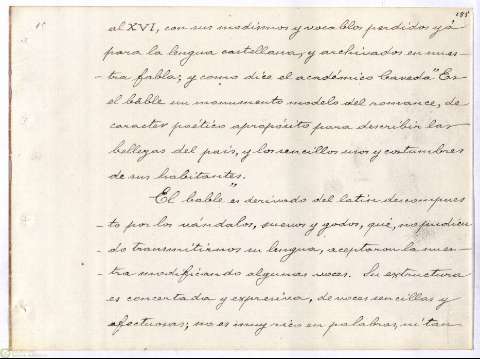 185
al XVI, con sus modismos y vocablos perdidos yá
para la lengua castellana, y archivados en nues-
tra fabla; y como dice el académico Caveda "Es
el bable un monumento modelo del romance, de
caracter poético apropósito para describir las
bellezas del país, y los sencillos usos y costumbres
de sus habitantes."
El bable es derivado del latin descompues
to por los vándalos, suevos y godos, que, no pudien
do transmitirnos su lengua, aceptaron la nues-
tra modificando algunas voces. Su extructura
es concertada y expresiva, de voces sencillas y
afectuosas; no es muy rico en palabras, ni tan